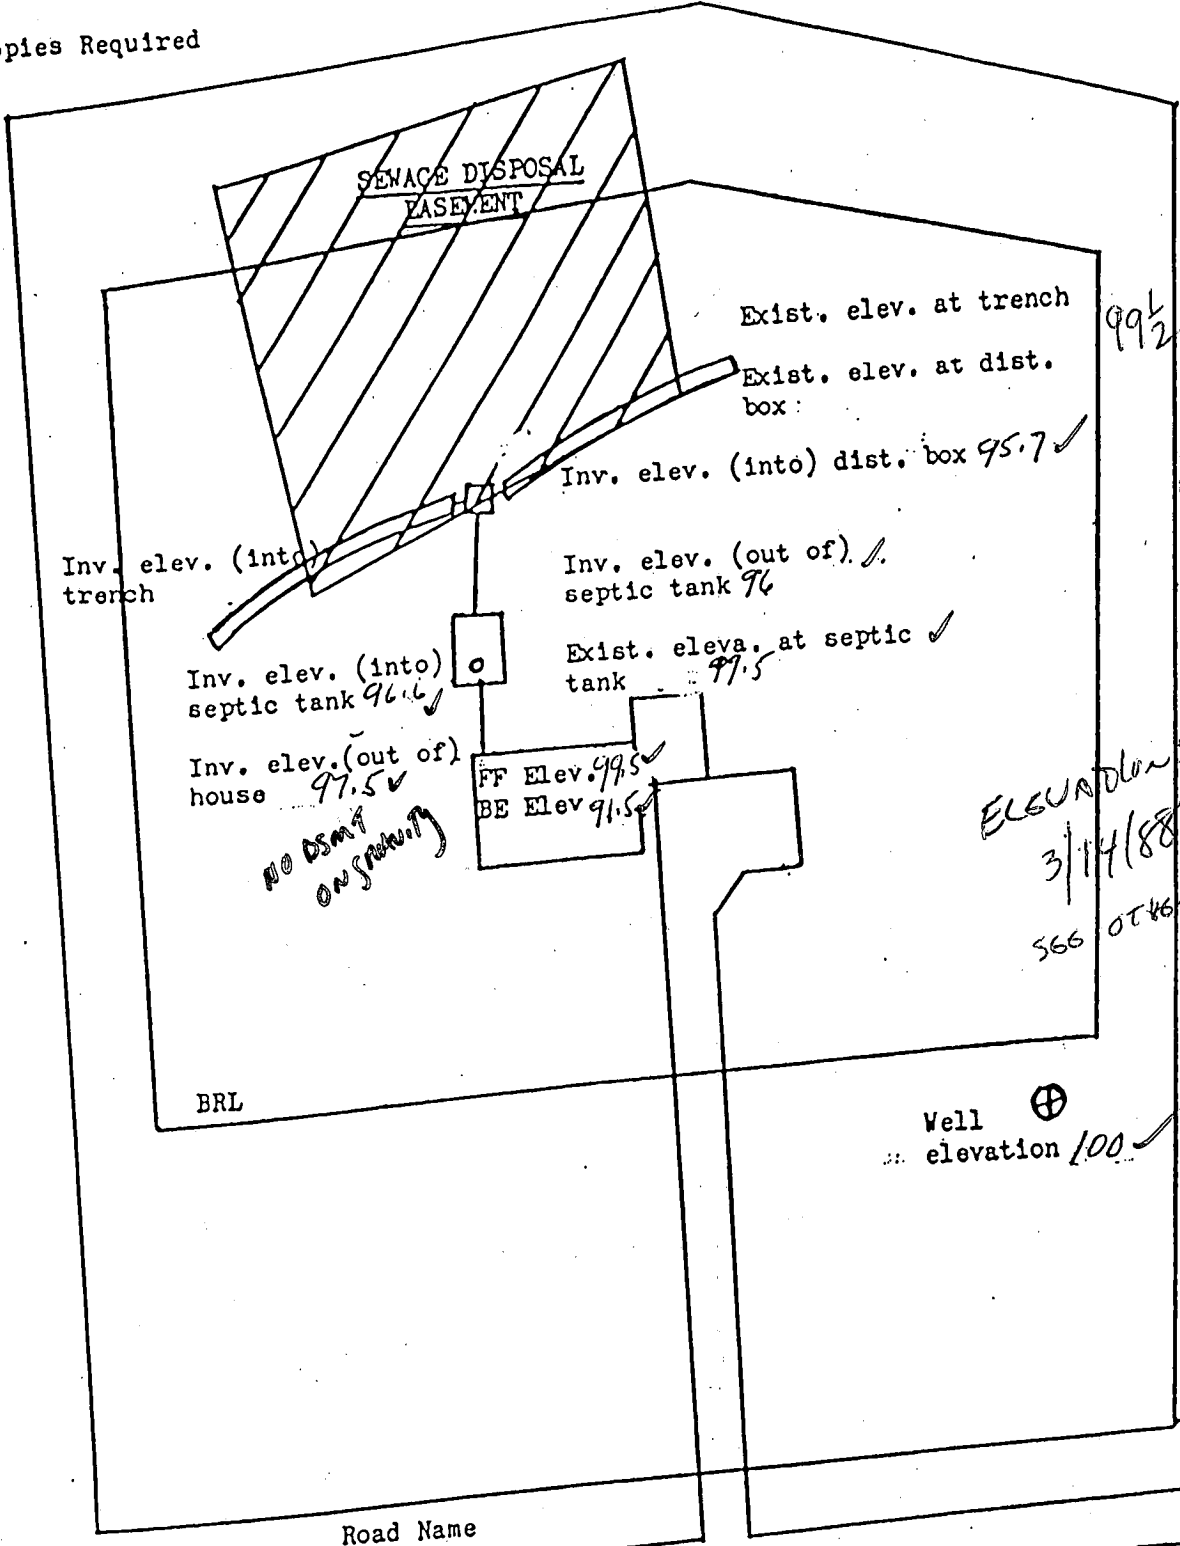 opies Required
SEWAGE DISPOSAL
EASEMENT
Exist. elev. at trench
99 1/2
Exist. elev. at dist.
box:
Inv. elev. (into) dist. box 95.7 ✓
Inv. elev. (into)
trench
Inv. elev. (out of) ✓
septic tank 96
Exist. eleva. at septic ✓
tank 97.5
Inv. elev. (into)
septic tank 96.6 ✓
Inv. elev. (out of)
house 97.5 ✓
FF Elev. 99.5 ✓
BE Elev 91.5 ✓
NO BSMT
ON GRAVITY
3/14/88
BRL
Well
elevation 100 ✓
Road Name